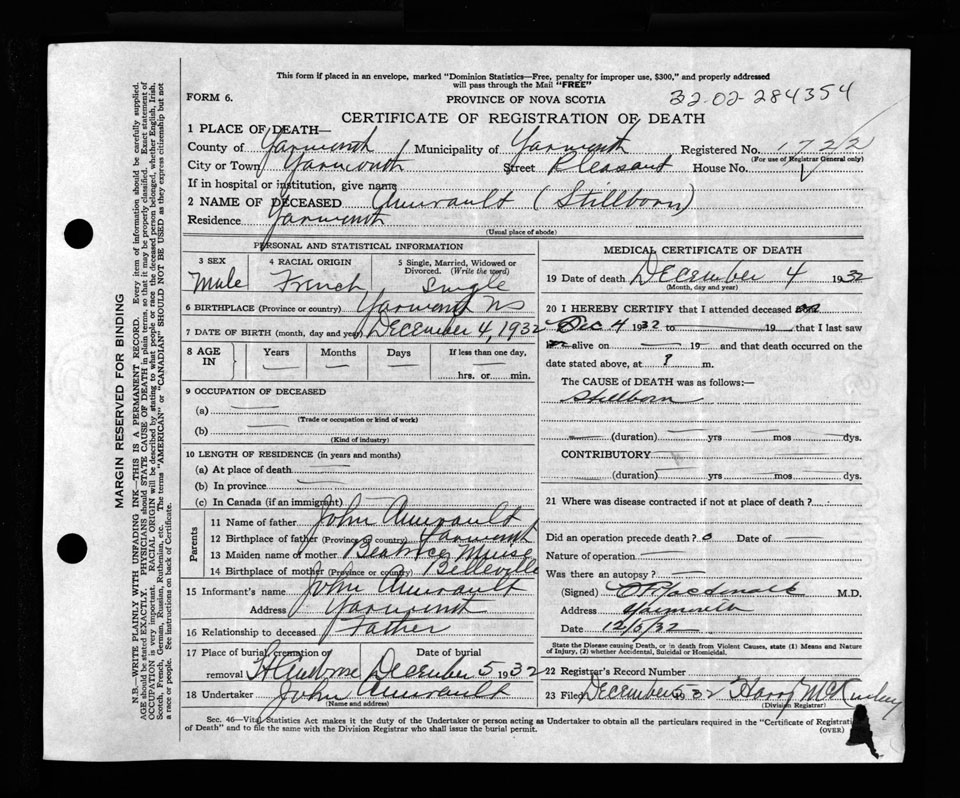 This form if placed in an envelope, marked "Dominion Statistics—Free, penalty for improper use, $300," and properly addressed
will pass through the Mail "FREE"
FORM 6.
PROVINCE OF NOVA SCOTIA
32-02-284354
CERTIFICATE OF REGISTRATION OF DEATH
1 PLACE OF DEATH—
County of Yarmouth Municipality of Yarmouth Registered No. 1722
(For use of Registrar General only)
City or Town Yarmouth Street Pleasant House No.
If in hospital or institution, give name
2 NAME OF DECEASED Amirault (Stillborn)
Residence Yarmouth
(Usual place of abode)
PERSONAL AND STATISTICAL INFORMATION
3 SEX 4 RACIAL ORIGIN 5 Single, Married, Widowed or
Divorced. (Write the word)
Male French Single
6 BIRTHPLACE (Province or country) Yarmouth NS
7 DATE OF BIRTH (month, day and year) December 4, 1932
8 AGE IN Years Months Days If less than one day,
hrs. or min.
9 OCCUPATION OF DECEASED
(a)
(Trade or occupation or kind of work)
(b)
(Kind of industry)
10 LENGTH OF RESIDENCE (in years and months)
(a) At place of death
(b) In province
(c) In Canada (if an immigrant)
Parents
11 Name of father John Amirault
12 Birthplace of father (Province or country) Yarmouth
13 Maiden name of mother Beatrice Muise
14 Birthplace of mother (Province or country) Belleville
15 Informant's name John Amirault
Address Yarmouth
16 Relationship to deceased Father
17 Place of burial, cremation or Date of burial
removal St Ambrose December 5 1932
18 Undertaker John Amirault
(Name and address)
MEDICAL CERTIFICATE OF DEATH
19 Date of death December 4 1932
(Month, day and year)
20 I HEREBY CERTIFY that I attended deceased
Dec 4 1932 to 19 that I last saw
alive on 19 and that death occurred on the
date stated above, at ? m.
The CAUSE OF DEATH was as follows:—
Stillborn
(duration) yrs mos dys.
CONTRIBUTORY
(duration) yrs mos dys.
21 Where was disease contracted if not at place of death?
Did an operation precede death? o Date of
Nature of operation
Was there an autopsy?
(Signed) Macdonald M.D.
Address Yarmouth
Date 12/5/32
State the Disease causing Death, or in death from Violent Causes, state (1) Means and Nature
of Injury, (2) whether Accidental, Suicidal or Homicidal.
22 Registrar's Record Number
23 Filed December 5 1932 Harry McKinley
(Division Registrar)
Sec. 46—Vital Statistics Act makes it the duty of the Undertaker or person acting as Undertaker to obtain all the particulars required in the "Certificate of Registration
of Death" and to file the same with the Division Registrar who shall issue the burial permit.
(OVER)
MARGIN RESERVED FOR BINDING
N.B.—WRITE PLAINLY WITH UNFADING INK—THIS IS A PERMANENT RECORD. Every item of information should be carefully supplied.
AGE should be stated EXACTLY. PHYSICIANS should STATE CAUSE OF DEATH in plain terms, so that it may be properly classified. Exact statement of
OCCUPATION is very important. RACIAL ORIGIN will be described by stating to what people or race the deceased person belonged, whether English, Irish,
Scotch, French, German, Russian, Ruthenian, etc. The terms "AMERICAN" or "CANADIAN" SHOULD NOT BE USED as they express citizenship but not
a race or people. See instructions on back of Certificate.